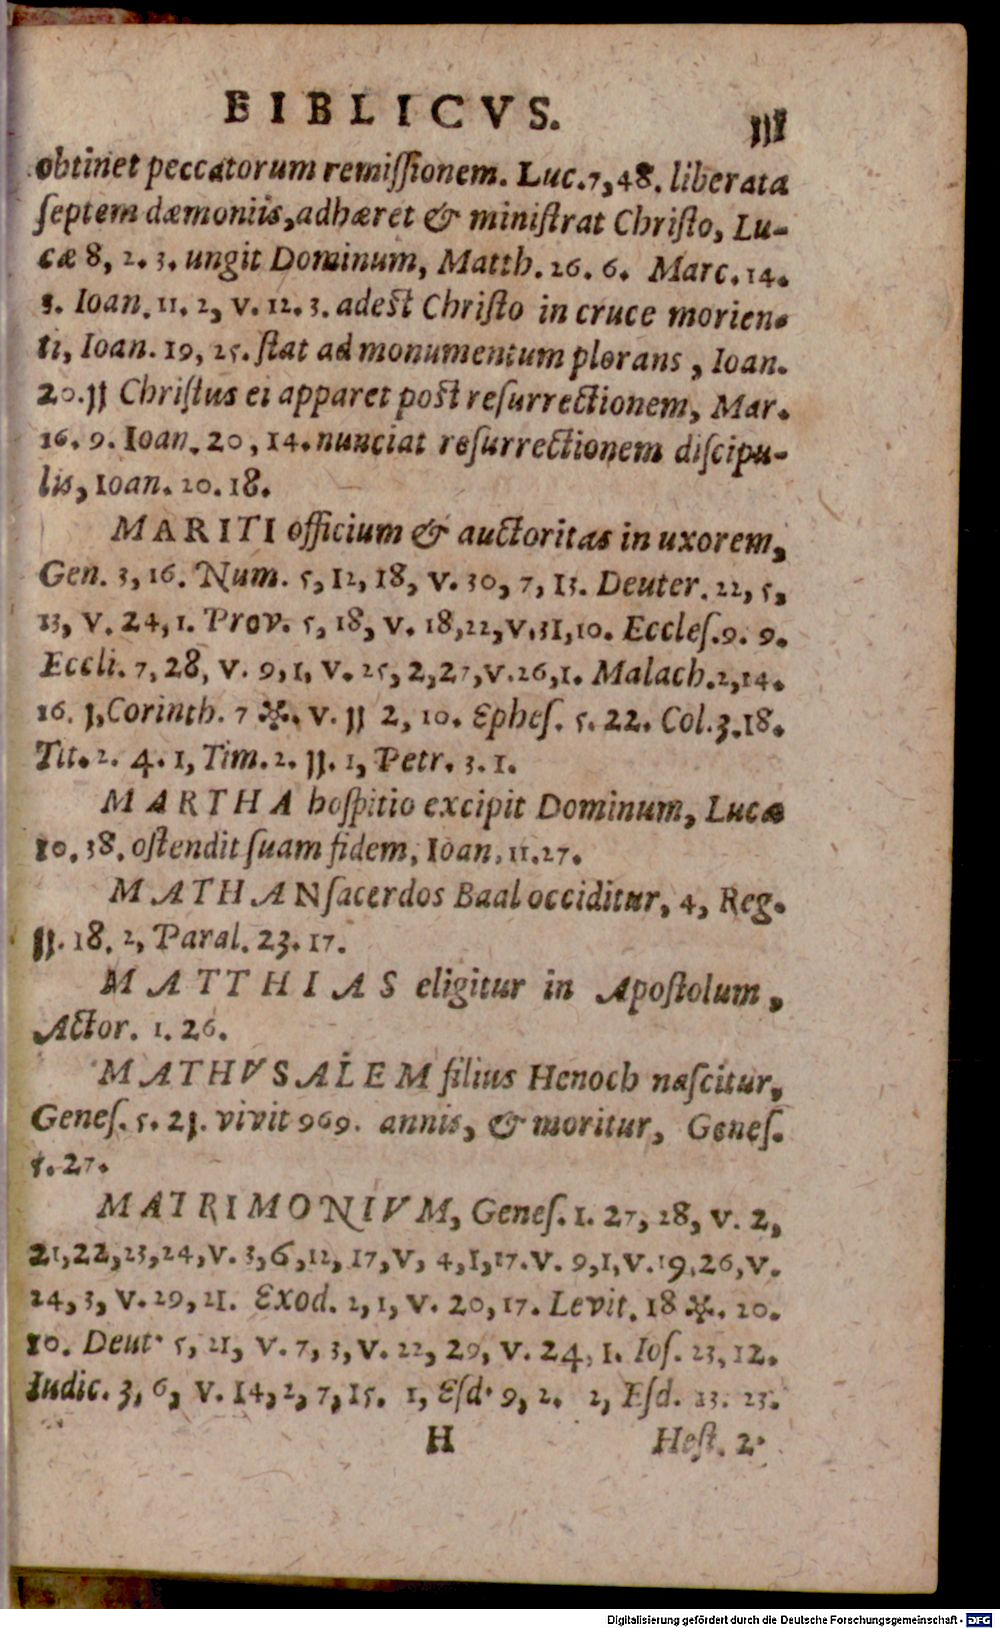 BIBLICVS. 111
obtinet peccatorum remiſſionem. Luc. 7, 48. liberata
ſeptem dæmoniis, adhæret & miniſtrat Chriſto, Lu-
cæ 8, 2. 3. ungit Dominum, Matth. 26. 6. Marc. 14.
3. Ioan. 11. 2, v. 12. 3. adeſt Chriſto in cruce morien-
ti, Ioan. 19, 25. ſtat ad monumentum plorans, Ioan.
20. 11 Chriſtus ei apparet poſt reſurrectionem, Mar.
16. 9. Ioan. 20, 14. nunciat reſurrectionem diſcipu-
lis, Ioan. 20. 18.
MARITI officium & auctoritas in uxorem,
Gen. 3, 16. Num. 5, 12, 18, v. 30, 7, 13. Deuter. 22, 5,
13, v. 24, 1. Prov. 5, 18, v. 18, 22, v. 31, 10. Eccleſ. 9. 9.
Eccli. 7, 28, v. 9, 1, v. 25, 2, 27, v. 26, 1. Malach. 2, 14.
16. 1, Corinth. 7 *. v. 11 2, 10. Epheſ. 5. 22. Col. 3. 18.
Tit. 2. 4. 1, Tim. 2. 11. 1, Petr. 3. 1.
MARTHA hoſpitio excipit Dominum, Lucæ
10. 38. oſtendit ſuam fidem, Ioan. 11. 27.
MATHAN ſacerdos Baal occiditur, 4, Reg.
11. 18. 2, Paral. 23. 17.
MATTHIAS eligitur in Apoſtolum,
Actor. 1. 26.
MATHVSALEM filius Henoch naſcitur,
Geneſ. 5. 21. vivit 969. annis, & moritur, Geneſ.
5. 27.
MATRIMONIVM, Geneſ. 1. 27, 28, v. 2,
21, 22, 23, 24, v. 3, 6, 12, 17, v, 4, 1, 17. v. 9, 1, v. 19, 26, v.
24, 3, v. 29, 21. Exod. 2, 1, v. 20, 17. Levit. 18 *. 20.
10. Deut. 5, 21, v. 7, 3, v. 22, 29, v. 24, 1. Ioſ. 23, 12.
Iudic. 3, 6, v. 14, 2, 7, 15. 1, Eſd. 9, 2. 2, Eſd. 13. 23.
H Heſt. 2.
Digitalisierung gefördert durch die Deutsche Forschungsgemeinschaft - DFG